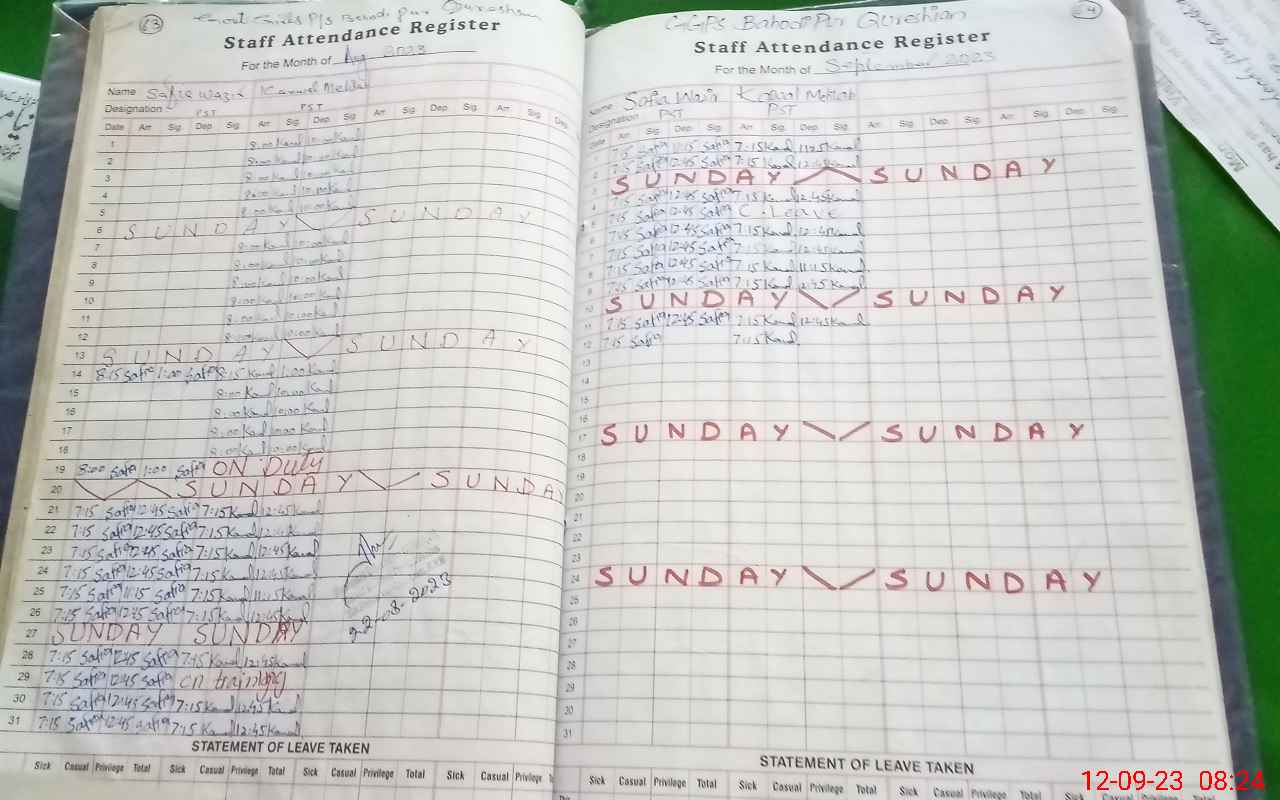 23
Govt Girls P/S Bahadi pur Qureshian
Staff Attendance Register
For the Month of Aug 2023
Name Safia Wazir Kanwal Mehtab
Designation PST PST
Date Arr Sig. Dep. Sig. Arr Sig. Dep. Sig. Arr Sig. Dep. Sig. Arr Sig. Dep.
1 8:00 Kanwal 10:00 Kanwal
2 8:00 Kanwal 10:00 Kanwal
3 8:00 Kanwal 10:00 Kanwal
4 8:00 Kanwal 10:00 Kanwal
5 8:00 Kanwal 10:00 Kanwal
6 SUNDAY SUNDAY
7 8:00 Kanwal 10:00 Kanwal
8 8:00 Kanwal 10:00 Kanwal
9 8:00 Kanwal 10:00 Kanwal
10 8:00 Kanwal 10:00 Kanwal
11 8:00 Kanwal 10:00 Kanwal
12 8:00 Kanwal 10:00 Kanwal
13 SUNDAY SUNDAY
14 8:15 Safia 1:00 Safia 8:15 Kanwal 1:00 Kanwal
15 8:00 Kanwal 10:00 Kanwal
16 8:00 Kanwal 10:00 Kanwal
17 8:00 Kanwal 10:00 Kanwal
18 8:00 Kanwal 10:00 Kanwal
19 8:00 Safia 1:00 Safia ON Duty
20 SUNDAY SUNDAY
21 7:15 Safia 12:45 Safia 7:15 Kanwal 12:45 Kanwal
22 7:15 Safia 12:45 Safia 7:15 Kanwal 12:45 Kanwal
23 7:15 Safia 12:45 Safia 7:15 Kanwal 12:45 Kanwal
24 7:15 Safia 12:45 Safia 7:15 Kanwal 12:45 Kanwal
25 7:15 Safia 11:15 Safia 7:15 Kanwal 11:15 Kanwal
26 7:15 Safia 12:45 Safia 7:15 Kanwal 12:45 Kanwal
22-08-2023
27 SUNDAY SUNDAY
28 7:15 Safia 12:45 Safia 7:15 Kanwal 12:45 Kanwal
29 7:15 Safia 12:45 Safia on training
30 7:15 Safia 12:45 Safia 7:15 Kanwal 12:45 Kanwal
31 7:15 Safia 12:45 Safia 7:15 Kanwal 12:45 Kanwal
STATEMENT OF LEAVE TAKEN
Sick Casual Privilege Total Sick Casual Privilege Total Sick Casual Privilege Total Sick Casual Privilege
24
GGPS Bahadi Pur Qureshian
Staff Attendance Register
For the Month of September 2023
Name Safia Wazir Kanwal Mehtab
Designation PST PST
Date Arr Sig. Dep. Sig. Arr Sig. Dep. Sig. Arr Sig. Dep. Sig. Arr Sig. Dep. Sig.
1 7:15 Safia 11:15 Safia 7:15 Kanwal 11:15 Kanwal
2 7:15 Safia 12:45 Safia 7:15 Kanwal 12:45 Kanwal
3 SUNDAY SUNDAY
4 7:15 Safia 12:45 Safia 7:15 Kanwal 12:45 Kanwal
5 7:15 Safia 12:45 Safia C. Leave
6 7:15 Safia 12:45 Safia 7:15 Kanwal 12:45 Kanwal
7 7:15 Safia 12:45 Safia 7:15 Kanwal 12:45 Kanwal
8 7:15 Safia 12:45 Safia 7:15 Kanwal 11:15 Kanwal
9 7:15 Safia 12:45 Safia 7:15 Kanwal 12:45 Kanwal
10 SUNDAY SUNDAY
11 7:15 Safia 12:45 Safia 7:15 Kanwal 12:45 Kanwal
12 7:15 Safia 7:15 Kanwal
13
14
15
16
17 SUNDAY SUNDAY
18
19
20
21
22
23
24 SUNDAY SUNDAY
25
26
27
28
29
30
31
STATEMENT OF LEAVE TAKEN
Sick Casual Privilege Total Sick Casual Privilege Total Sick Casual Privilege Total Sick Casual Privilege Total
12-09-23 08:24